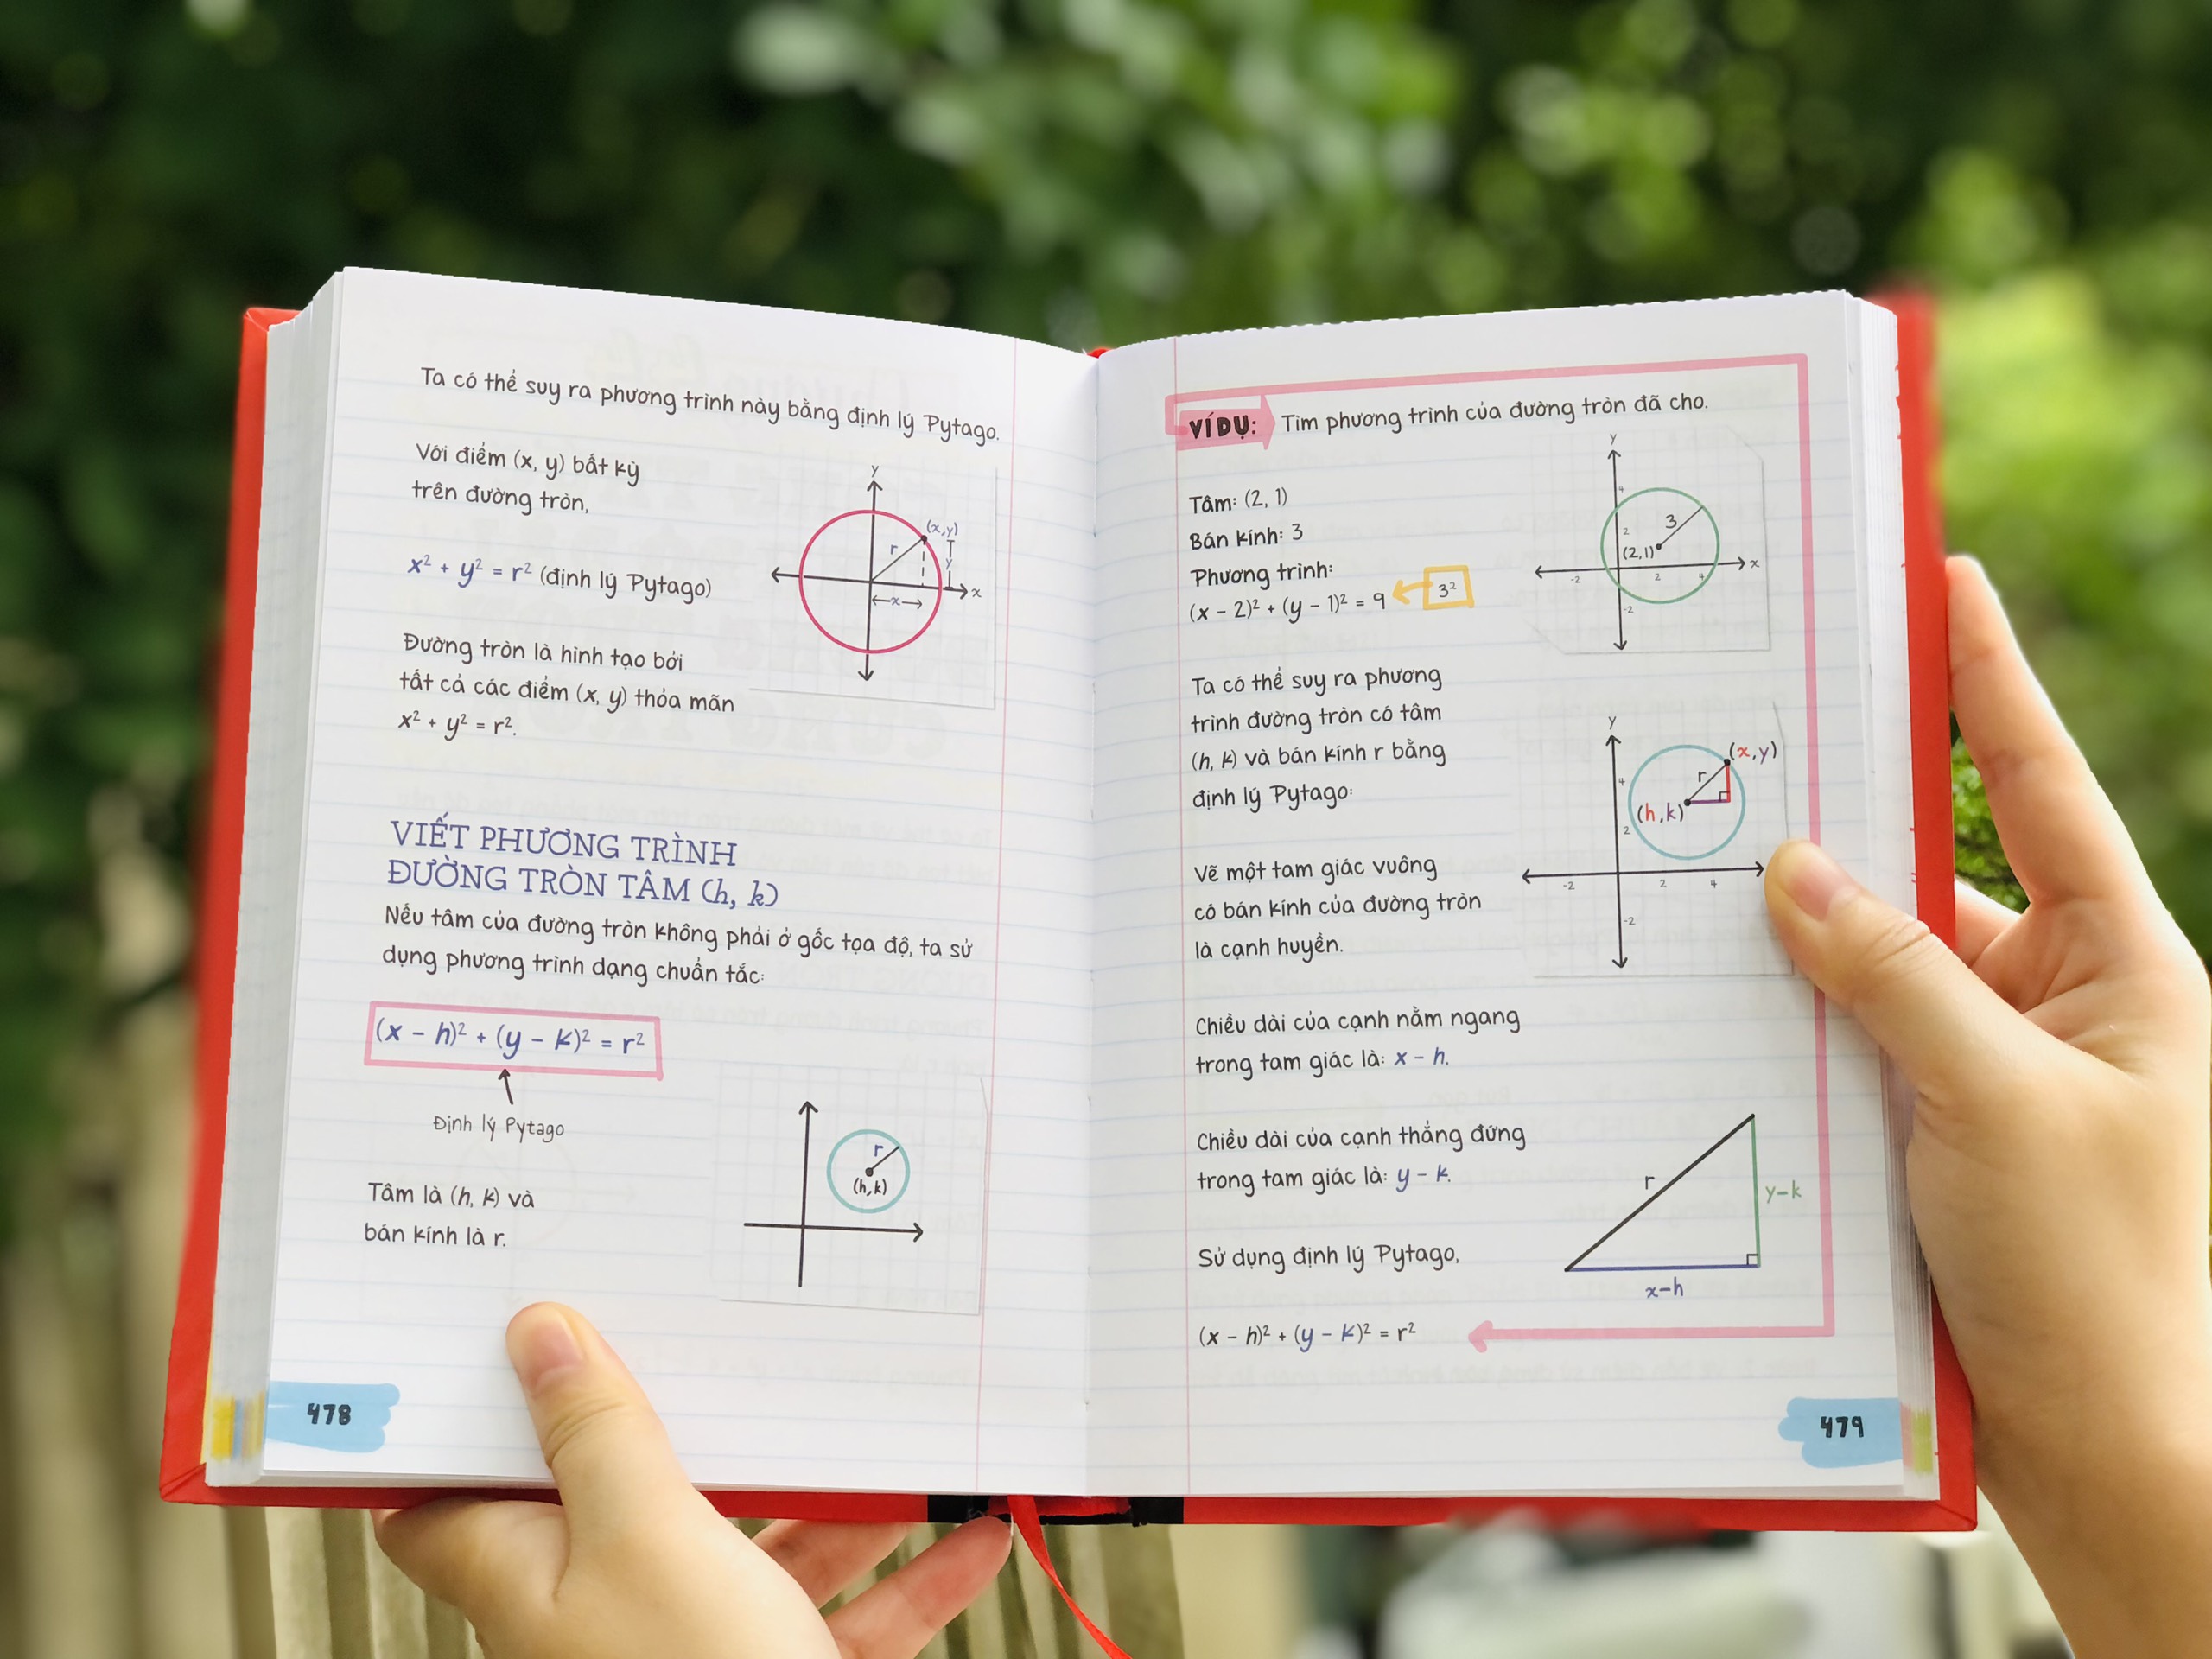 Ta có thể suy ra phương trình này bằng định lý Pytago.
Với điểm (x, y) bất kỳ
trên đường tròn,
x² + y² = r² (định lý Pytago)
y
(x,y)
r
y
x
x
Đường tròn là hình tạo bởi
tất cả các điểm (x, y) thỏa mãn
x² + y² = r².
VIẾT PHƯƠNG TRÌNH
ĐƯỜNG TRÒN TÂM (h, k)
Nếu tâm của đường tròn không phải ở gốc tọa độ, ta sử
dụng phương trình dạng chuẩn tắc:
(x – h)² + (y – k)² = r²
Định lý Pytago
Tâm là (h, k) và
bán kính là r.
r
(h,k)
478
VÍ DỤ: Tìm phương trình của đường tròn đã cho.
Tâm: (2, 1)
Bán kính: 3
Phương trình:
(x – 2)² + (y – 1)² = 9
3²
y
4
2
3
(2,1)
x
-2
2
4
-2
Ta có thể suy ra phương
trình đường tròn có tâm
(h, k) và bán kính r bằng
định lý Pytago:
y
(x,y)
4
r
(h,k)
2
-2
2
4
-2
Vẽ một tam giác vuông
có bán kính của đường tròn
là cạnh huyền.
Chiều dài của cạnh nằm ngang
trong tam giác là: x – h.
Chiều dài của cạnh thẳng đứng
trong tam giác là: y – k.
r
y–k
x–h
Sử dụng định lý Pytago,
(x – h)² + (y – k)² = r²
479